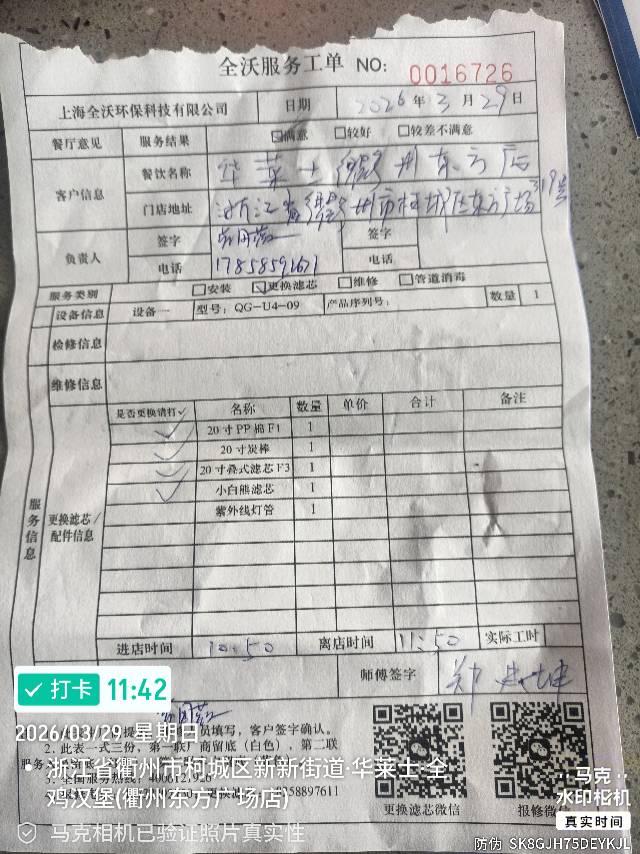 全沃服务工单 NO: 0016726
上海全沃环保科技有限公司 日期 2026年3月29日
餐厅意见 服务结果 ☑满意 □较好 □较差不满意
客户信息 餐饮名称 华莱士 衢州东方店
门店地址 浙江省衢州市柯城区东方广场319号
负责人 签字 签字
电话 17858591671 电话
服务类别 □安装 ☑更换滤芯 □维修 □管道消毒
设备信息 设备一 型号: QG-U4-09 产品序列号: 数量 1
检修信息
维修信息
服务信息 更换滤芯/配件信息
是否更换请打✓ 名称 数量 单价 合计 备注
✓ 20寸PP棉F1 1
✓ 20寸炭棒 1
✓ 20寸叠式滤芯F3 1
✓ 小白熊滤芯 1
紫外线灯管 1
进店时间 10:50 离店时间 11:50 实际工时
师傅签字
员填写，客户签字确认。
2. 此表一式三份，第一联厂商留底（白色），第二联
更换滤芯微信 报修微信
✓打卡 11:42
2026/03/29 星期日
浙江省衢州市柯城区新新街道·华莱士·全
鸡汉堡(衢州东方广场店)
马克相机已验证照片真实性
马克
水印相机
真实时间
防伪 SK8GJH75DEYKJL